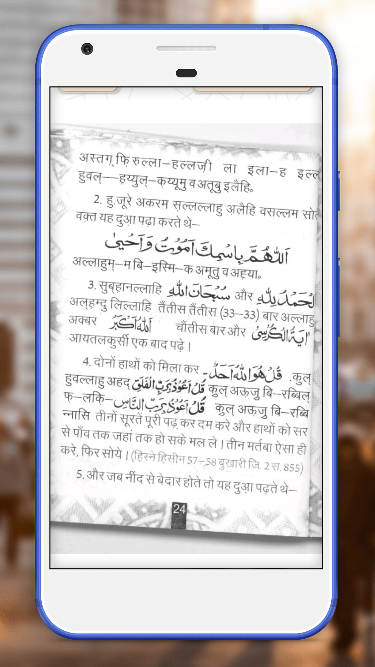 अस्तग् फि़रुल्ला–हल्लज़ी ला इला–ह इल्ल
हुवल्–हय्युल्–कय्यूमु व अतूबु इलैहि०
2. हु.जूरे अकरम स़ल्लल्लाहु अ़लैहि वसल्लम सोते
वक्त यह दुआ़ पढ़ा करते थे–
اَللّٰهُمَّ بِاسْمِكَ اَمُوْتُ وَ اَحْيٰي
अल्लाहुम्–म बि–इस्मि–क अमूतु व अह़्या०
3. सुब्ह़ानल्लाहि سُبْحَانَ اللّٰهِ और اَلْحَمْدُ لِلّٰهِ
अल्ह़म्दु लिल्लाहि तैंतीस तैंतीस (33–33) बार अल्लाहु
अक्बर اَللّٰهُ اَكْبَرُ चौंतीस बार और اٰيَةُ الْكُرْسِيْ
आयतलकुर्सी एक बाद पढ़े |
4. दोनों हाथों को मिला कर قُلْ هُوَ اللّٰهُ اَحَدٌ – .कुल्
हुवल्लाहु अह़द قُلْ اَعُوْذُ بِرَبِّ الْفَلَقِ कुल् अऊ़जु बि–रब्बिल्
फ़–लकि़– قُلْ اَعُوْذُ بِرَبِّ النَّاسِ कुल् अऊ़जु बि–रब्बि
न्नासि तीनों सूरतें पूरी पढ़ कर दम करे और हाथों को सर
से पाँव तक जहां तक हो सके मल ले | तीन मर्तबा ऐसा ही
करे, फिर सोये | (हि़स्ने ह़िसीन 57–58 बुख़ारी जि. 2 स. 855)
5. और जब नींद से बेदार होते तो यह दुआ़ पढ़ते थे–
24